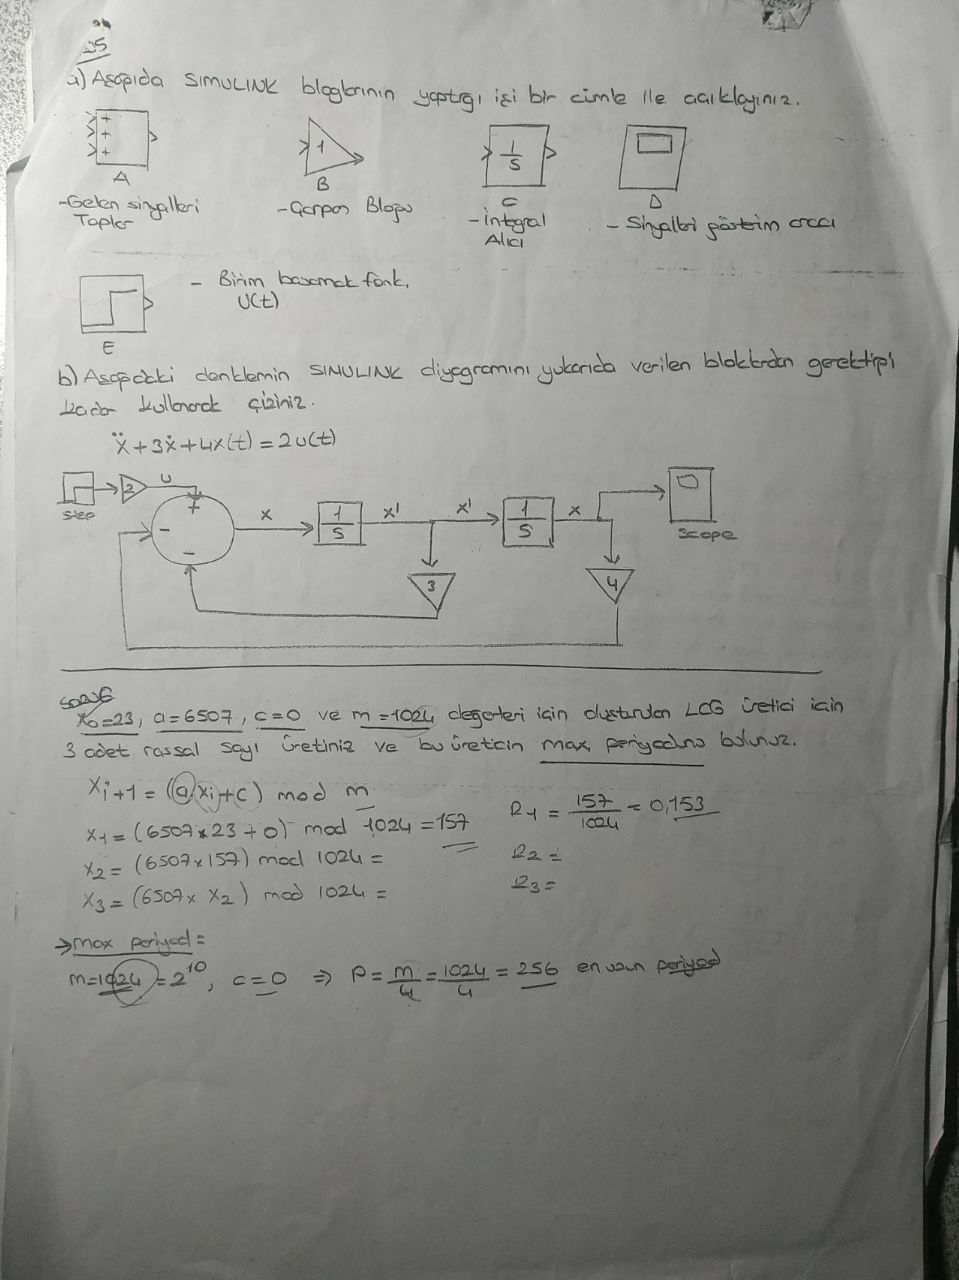 a) Aşağıda SIMULINK bloglarının yaptığı işi bir cümle ile açıklayınız.
+
+
+
1
1/S
A
B
C
D
-Gelen sinyalleri
Toplar
-Çarpan Bloğu
-integral
Alıcı
- Sinyalleri gösterim aracı
- Birim basamak fonk.
U(t)
E
b) Aşağıdaki denklemin SIMULINK diyagramını yukarıda verilen bloklardan gerektiği
kadar kullanarak çiziniz.
ẍ+3ẋ+4x(t)=2u(t)
step
2
U
+
-
-
x
1/S
x'
x'
1/S
x
scope
3
4
soru6
X₀=23, a=6507, c=0 ve m=1024 değerleri için oluşturulan LCG üretici için
3 adet rassal sayı üretiniz ve bu üreticin max periyodunu bulunuz.
Xi+1 = (a.xi+c) mod m
X1=(6507x23+0) mod 1024=157
R1 = 157/1024 = 0,153
X2=(6507x157) mod 1024=
R2=
X3=(6507x X2) mod 1024=
R3=
→max periyod=
m=1024=2^10, c=0 ⇒ P=m/4=1024/4=256 en uzun periyod